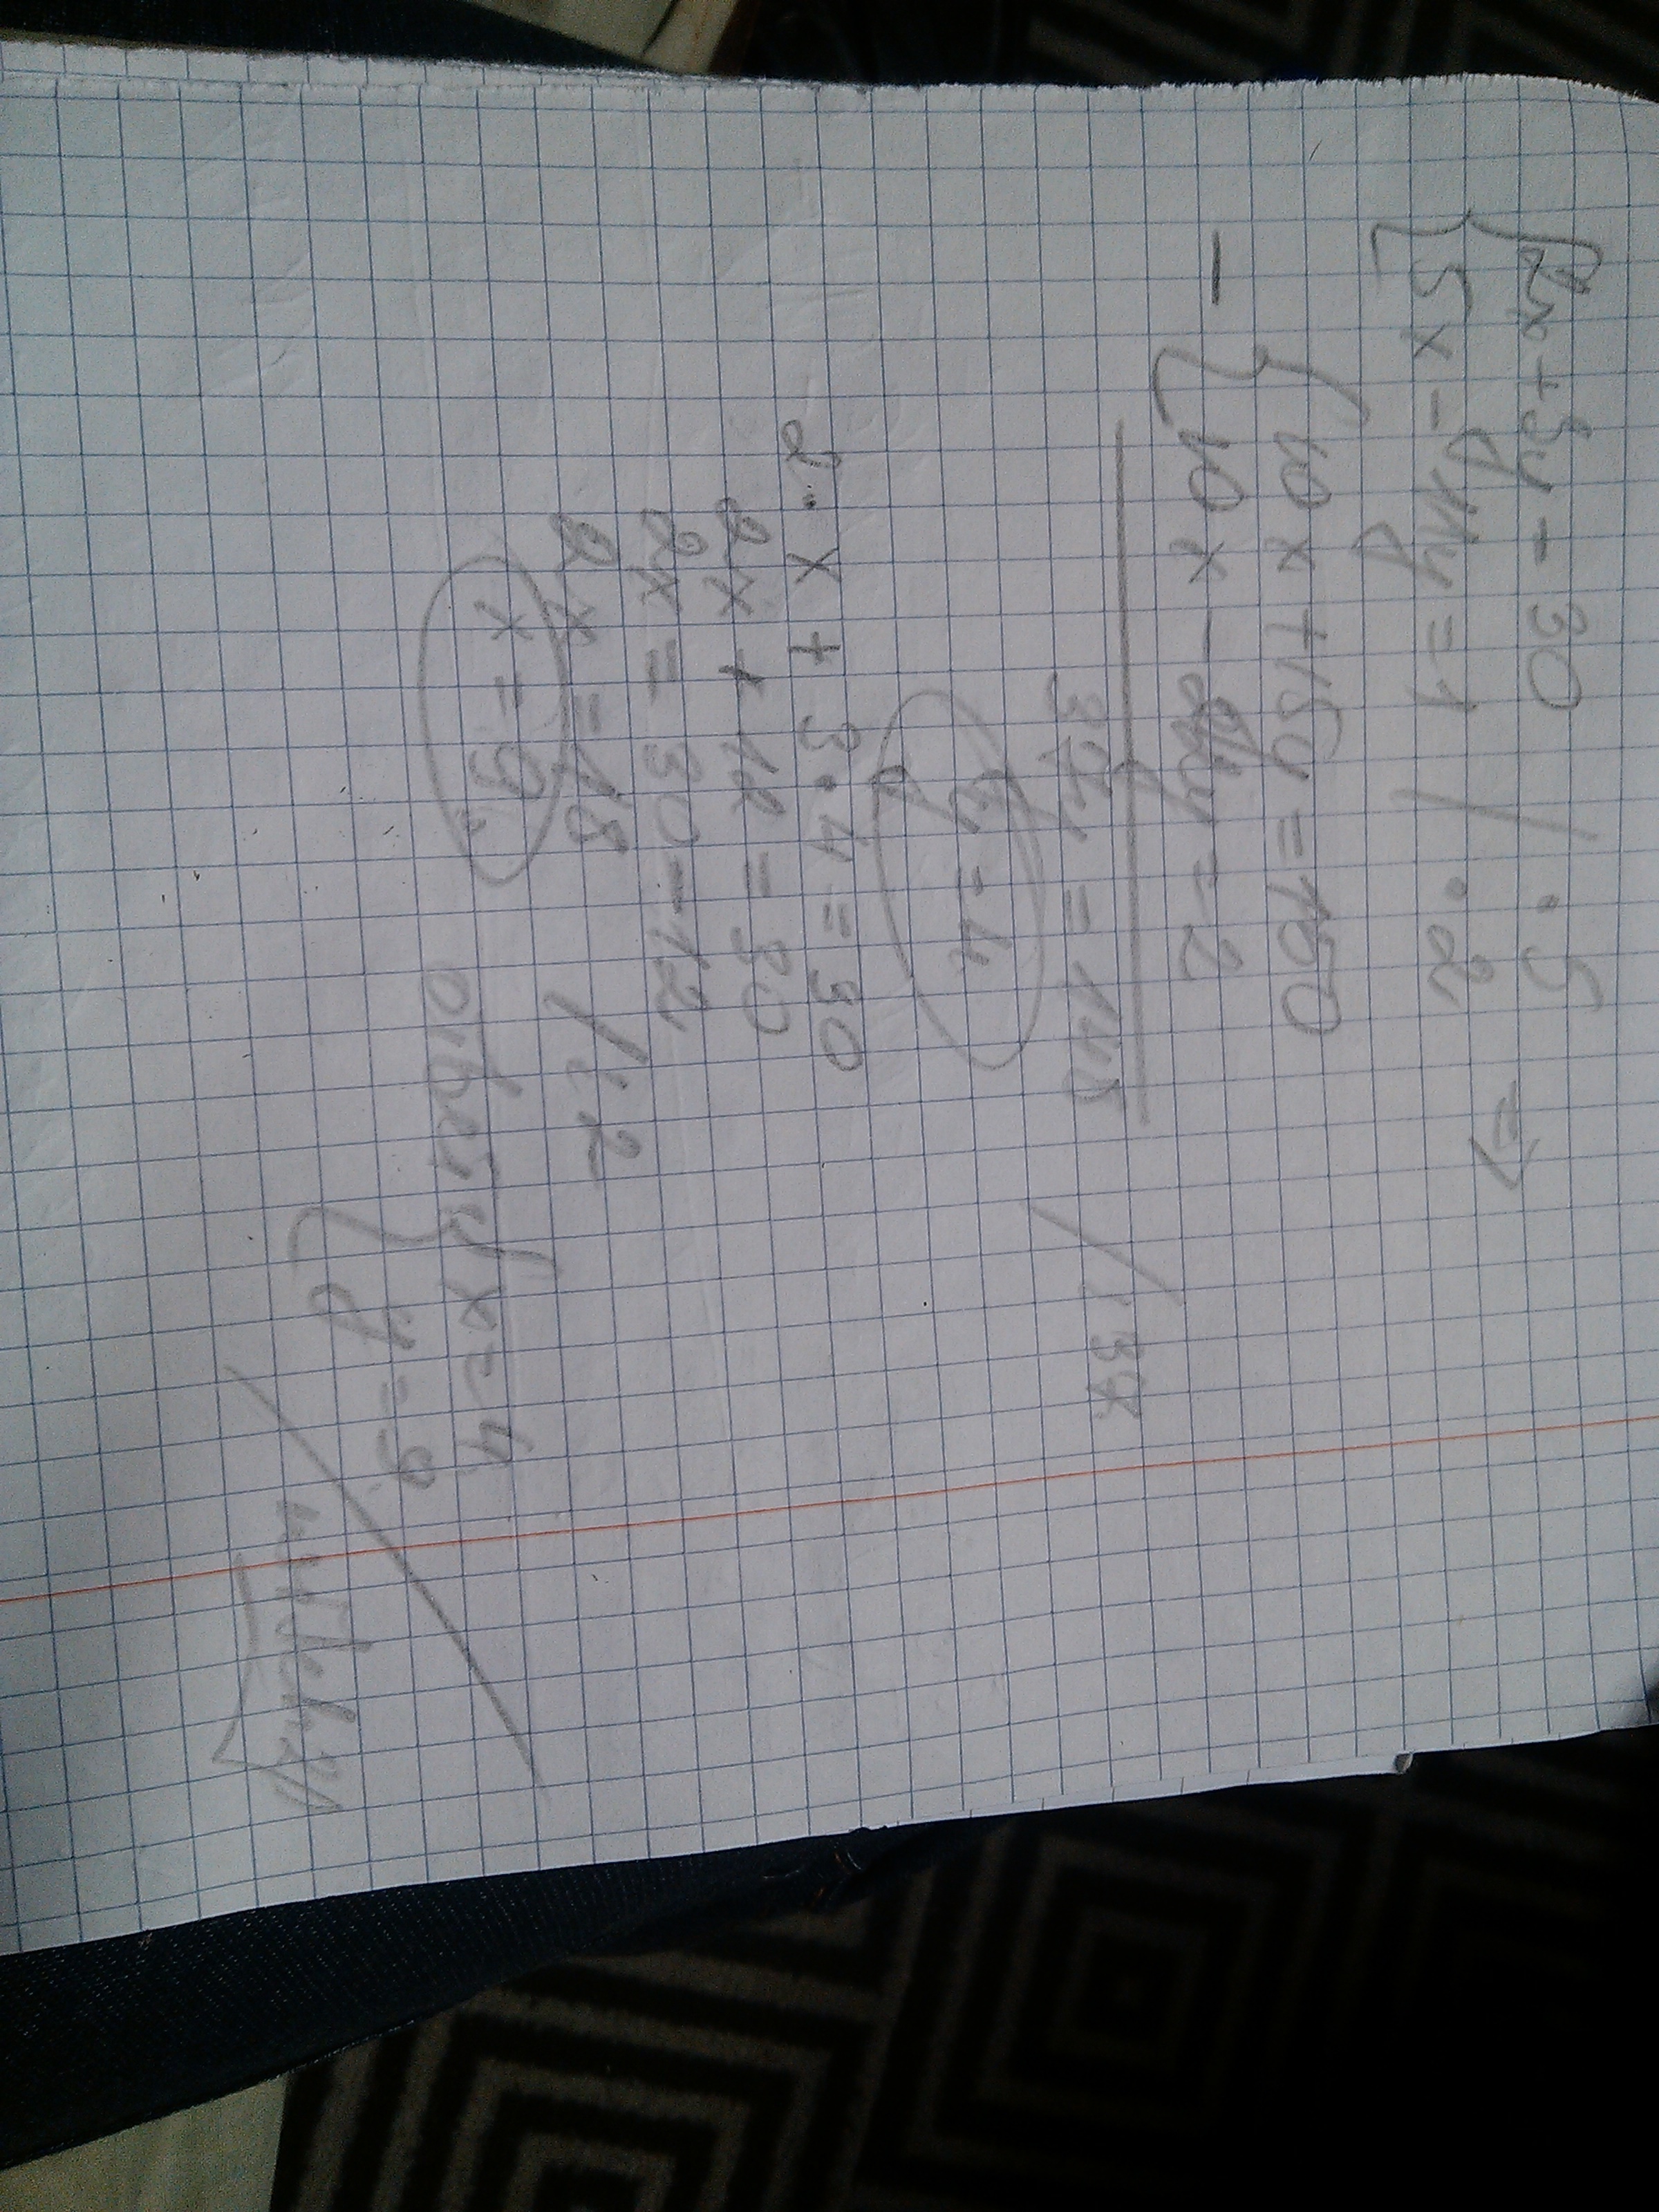 { 2x + 3y = 30 / · 5
{ 5x - 11y = 1 / · 2 ⇒
{ 10x + 15y = 150
- { 10x - 22y = 2
37y = 148 / : 37
y = 4
2 · x + 3 · 4 = 30
2x + 12 = 30
2x = 30 - 12
2x = 18 / : 2
x = 9
ответ { x = 4
{ y = 9